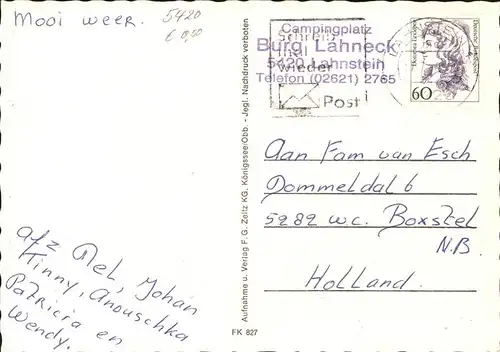 Mooi weer.
5420
€ 0,50
Campingplatz
Burg Lahneck
5420 Lahnstein
Telefon (02621) 2765
Schreib
mal
wieder
Post
60
Aan Fam van Esch
Dommeldal 6
5282 WC. Boxtel
N.B.
Holland.
afz Nel, Johan
Tinny, Anouschka
Patricia en
Wendy.
Aufnahme u. Verlag F. G. Zeitz KG. Königssee/Obb. - Jegl. Nachdruck verboten
FK 827